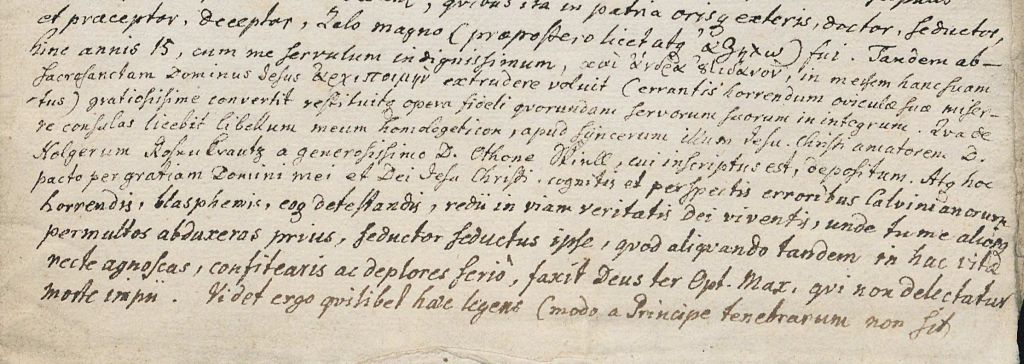 quibus ita in patria orisq exteris, doctor, seductor,
et præceptor, deceptor, Zelo magno (præpostero licet atq ἀζήλῳ) fui. Tandem ab-
hinc annis 15, cum me servulum indignissimum, καὶ ἄνδρα in messem hanc suam
sacrosanctam Dominus Jesus extrudere voluit (errantis horrendum oviculæ suæ miser-
tus) gratiosissimè convertit restituitq opera fideli quorundam servorum suorum in integrum. Qva de
re consulas licebit libellum meum homologeticon, apud syncerum illum Jesu Christi amatorem D.
Holgerum Rosenkrantz a generosissimo D. Othone Skeell, cui inscriptus est, depositum. Atq hoc
pacto per gratiam Domini mei et Dei Jesu Christi, cognitis et perspectis erroribus Calvinianorum
horrendis, blasphemis, eoq detestandis, redii in viam veritatis Dei viventis, unde tu me aliosq
permultos abduxeras prius, seductor seductus ipse, quod aliquando tandem in hac vita
recte agnoscas, confitearis ac deplores seriò, faxit Deus ter Opt. Max. qui non delectatur
morte impii. Videt ergo quilibet hæc legens (modo a Principe tenebrarum non sit